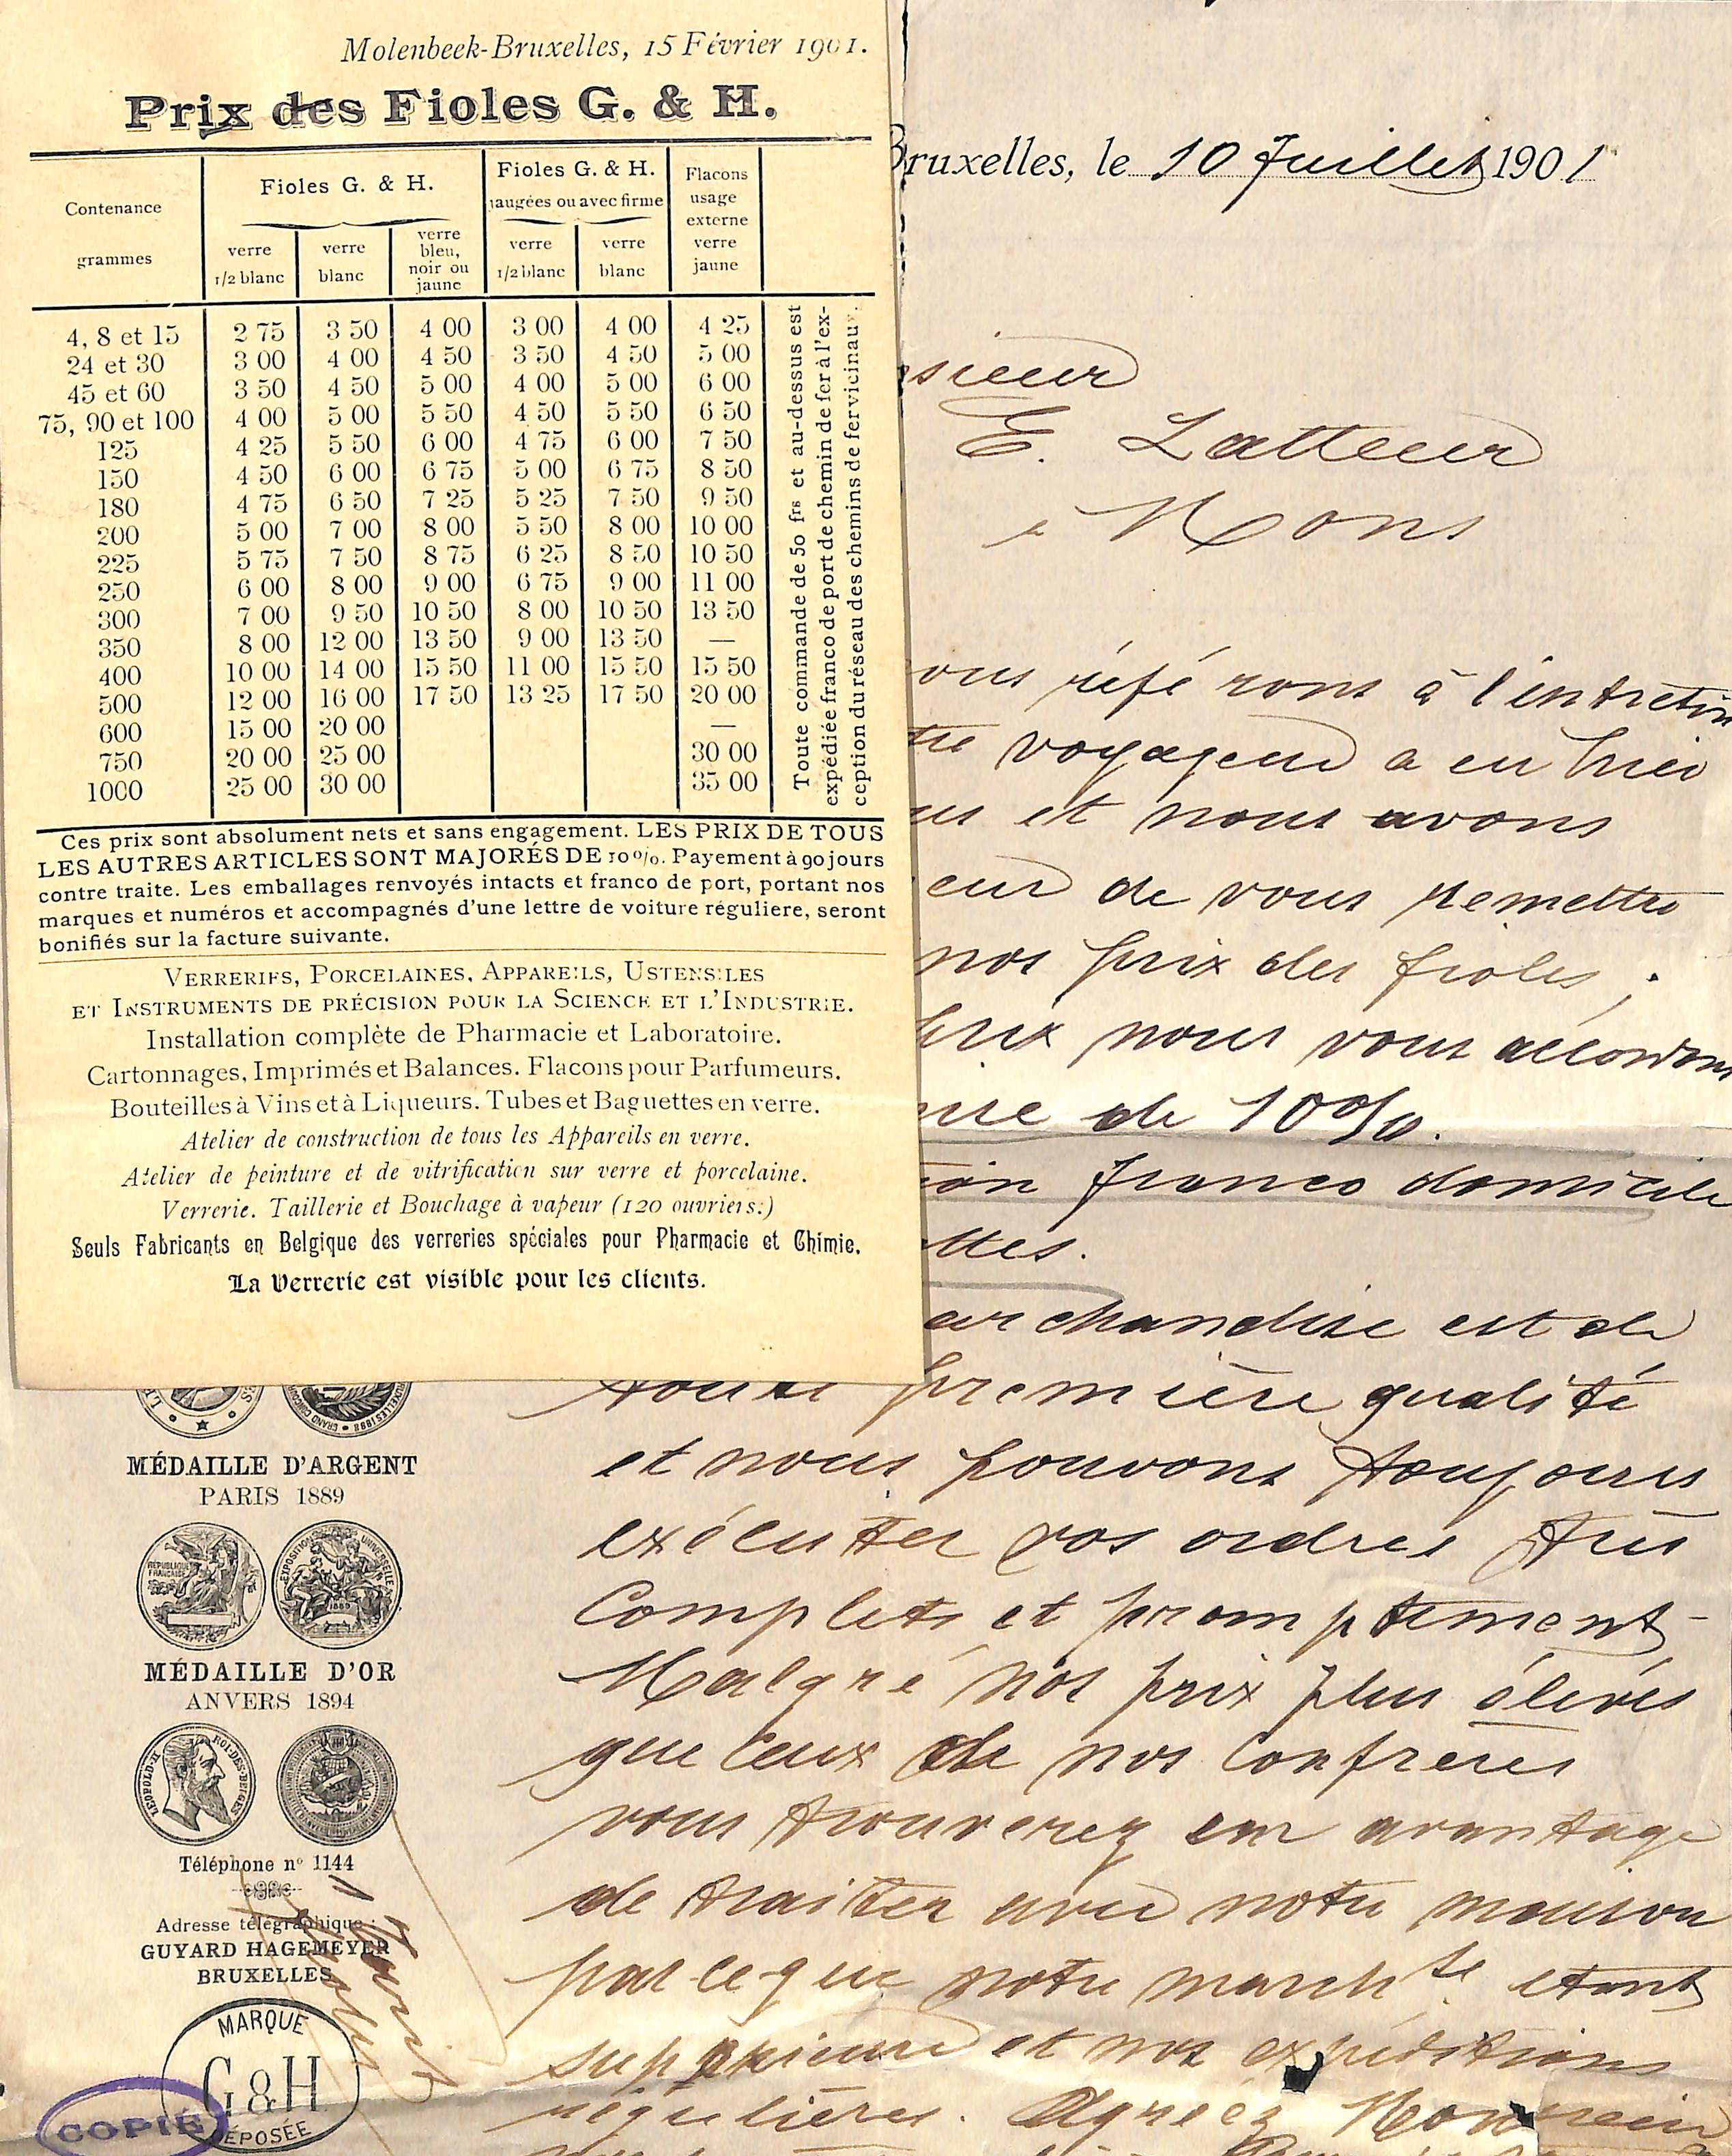 Molenbeek-Bruxelles, 15 Février 1901.
Prix des Fioles G. & H.
Contenance grammes
Fioles G. & H.
Fioles G. & H.
jaugées ou avec firme
Flacons usage externe verre jaune
verre 1/2 blanc
verre blanc
verre bleu, noir ou jaune
verre 1/2 blanc
verre blanc
4, 8 et 15 2 75 3 50 4 00 3 00 4 00 4 25
24 et 30 3 00 4 00 4 50 3 50 4 50 5 00
45 et 60 3 50 4 50 5 00 4 00 5 00 6 00
75, 90 et 100 4 00 5 00 5 50 4 50 5 50 6 50
125 4 25 5 50 6 00 4 75 6 00 7 50
150 4 50 6 00 6 75 5 00 6 75 8 50
180 4 75 6 50 7 25 5 25 7 50 9 50
200 5 00 7 00 8 00 5 50 8 00 10 00
225 5 75 7 50 8 75 6 25 8 50 10 50
250 6 00 8 00 9 00 6 75 9 00 11 00
300 7 00 9 50 10 50 8 00 10 50 13 50
350 8 00 12 00 13 50 9 00 13 50 —
400 10 00 14 00 15 50 11 00 15 50 15 50
500 12 00 16 00 17 50 13 25 17 50 20 00
600 15 00 20 00 —
750 20 00 25 00 30 00
1000 25 00 30 00 35 00
Toute commande de 50 frs et au-dessus est
expédiée franco de port de chemin de fer à l'ex-
ception du réseau des chemins de fer vicinaux.
Ces prix sont absolument nets et sans engagement. LES PRIX DE TOUS
LES AUTRES ARTICLES SONT MAJORÉS DE 10%. Payement à 90 jours
contre traite. Les emballages renvoyés intacts et franco de port, portant nos
marques et numéros et accompagnés d'une lettre de voiture régulière, seront
bonifiés sur la facture suivante.
VERRERIES, PORCELAINES, APPAREILS, USTENSILES
ET INSTRUMENTS DE PRÉCISION POUR LA SCIENCE ET L'INDUSTRIE.
Installation complète de Pharmacie et Laboratoire.
Cartonnages, Imprimés et Balances. Flacons pour Parfumeurs.
Bouteilles à Vins et à Liqueurs. Tubes et Baguettes en verre.
Atelier de construction de tous les Appareils en verre.
Atelier de peinture et de vitrification sur verre et porcelaine.
Verrerie. Taillerie et Bouchage à vapeur (120 ouvriers.)
Seuls Fabricants en Belgique des verreries spéciales pour Pharmacie et Chimie.
La Verrerie est visible pour les clients.
Bruxelles, le 10 Juillet 1901
sieur
E. Latteur
à Mons
ous référons à l'entretien
tre voyageur a eu hier
us et nous avons
eur de vous remettre
nos prix des fioles ;
prix nous vous accordons
ise de 10%.
ion franco domicile
ttes.
archandise est de
toute première qualité
et nous pouvons toujours
exécuter vos ordres très
complets et promptement
Malgré nos prix plus élevés
que ceux de nos confrères
vous trouverez un avantage
de traiter avec notre maison
parce que notre march se étant
supérieure et nos expéditions
régulières. Agréez Monsieur
MÉDAILLE D'ARGENT
PARIS 1889
RÉPUBLIQUE FRANÇAISE
EXPOSITION UNIVERSELLE
1889
MÉDAILLE D'OR
ANVERS 1894
LEOPOLD II ROI DES BELGES
Téléphone n° 1144
Adresse télégraphique :
GUYARD HAGEMEYER
BRUXELLES
1 Tarif
MARQUE
G&H
DÉPOSÉE
COPIÉ